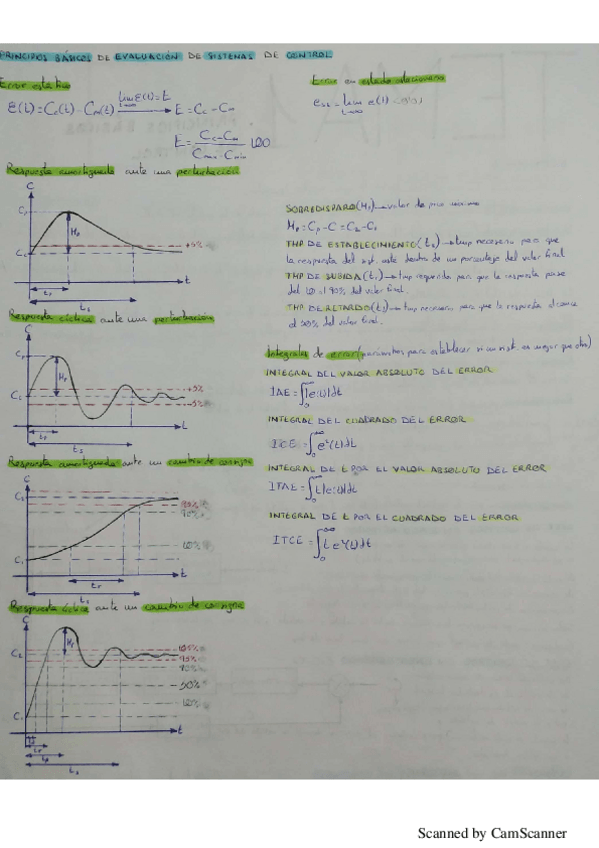 PRINCIPIOS BÁSICOS DE EVALUACIÓN DE SISTEMAS DE CONTROL
Error estático
Error en estado estacionario
Respuesta amortiguada ante una perturbación
SOBREDISPARO (Mp) → valor de pico máximo
TMP DE ESTABLECIMIENTO (ts) → tmp necesario para que
la respuesta del sist. esté dentro de un porcentaje del valor final
TMP DE SUBIDA (tr) → tmp requerido para que la respuesta pase
del 10 al 90% del valor final.
TMP DE RETARDO (t) → tmp necesario para que la respuesta alcance
el 50% del valor final.
Respuesta cíclica ante una perturbación
Integrales de error (parámetros para establecer si un sist. es mejor que otro)
INTEGRAL DEL VALOR ABSOLUTO DEL ERROR
IAE = ∫₀^∞ |e(t)| dt
INTEGRAL DEL CUADRADO DEL ERROR
ICE = ∫₀^∞ e²(t) dt
INTEGRAL DE t POR EL VALOR ABSOLUTO DEL ERROR
ITAE = ∫₀^∞ t |e(t)| dt
INTEGRAL DE t POR EL CUADRADO DEL ERROR
ITCE = ∫₀^∞ t e²(t) dt
Respuesta amortiguada ante un cambio de consigna
Respuesta cíclica ante un cambio de consigna
Scanned by CamScanner